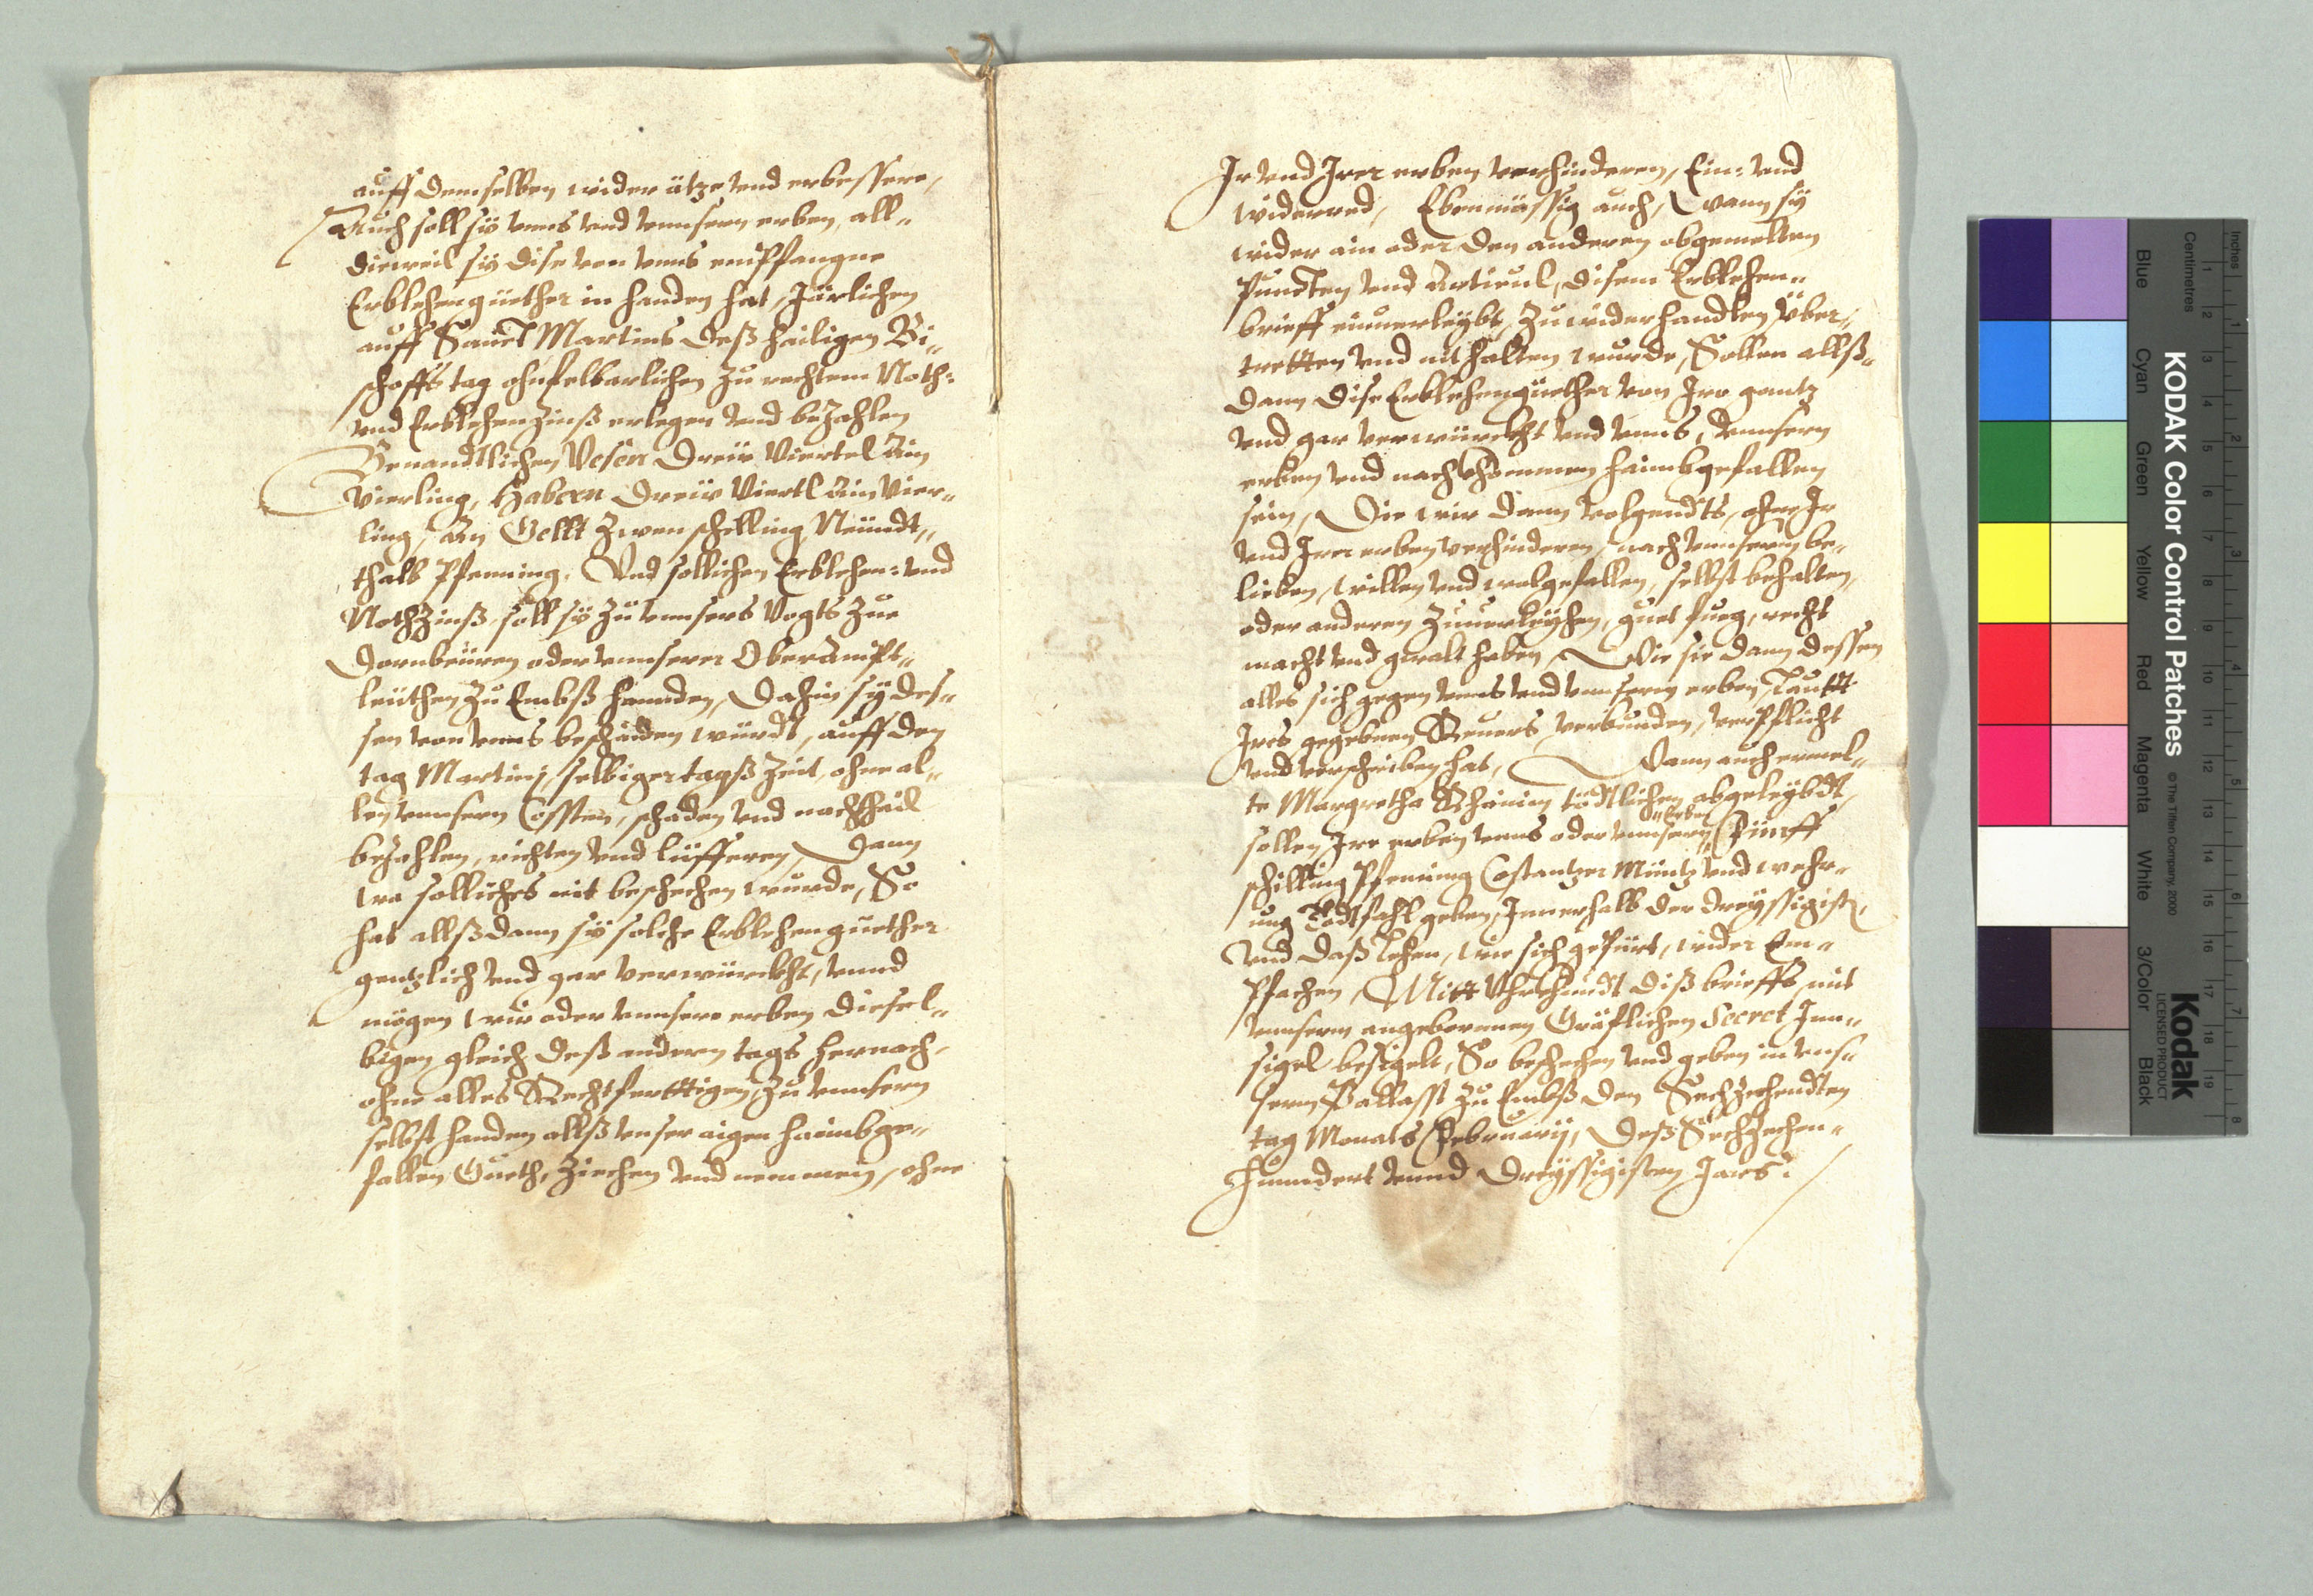 auff demselben wider ätze und erbessere,
Auch soll sÿ unns und unnsern erben, all-
dieweil sÿ dise von unns empfangne
Erblehengüether in handen hat, Järlichen
auff Sanct Martins deß hailigen Bi-
schoffs tag ohnfelbarlichen zu rechtem Noth:
und Erblehenzinß erlegen und bezahlen
Benandtlichen Vesen dreÿ Viertel Ain
Vierling, Habern dreÿ Viertl Ain Vier-
ling, An Gellt zwen schilling Neündt-
thalb Pfenning, Und sollichen Erblehen: und
Nothzinß, soll sÿ zu unnsers Vogts zue
Dornbeüren oder unnserer Oberämpt-
leüthen zu Embß hannden, dahin sÿ des-
sen von unns beschaiden würdt, auff den
tag Martinj, selbiger tagß Zeit, ohne al-
len unnsern Cossten, schaden und nachthail
bezahlen, richten und lüfferen, dann
wa solliches nit beschechen wurde, So
hat allßdann sÿ solche Erblehengüether
gentzlich und gar verwürckht, unnd
mögen wir oder unnsere erben diesel-
bigen gleich deß andern tags hernach,
ohne alles Rechtferttigen, zu unnsern
selbst handen allß unser aigen haimbge-
fallen Gueth, ziechen und nemmen, ohne
Ir und Irer erben verhinderen, Ein: und
widerred, Ebenmässig auch, wann sÿ
wider ain oder den anderen obgemelten
Puncten und Articul, disem Erblehen-
brieff einverleybt, zuwider handlen, über-
tretten und nit halten wurde, Sollen allß-
dann dise Erblehengüether von Iro gantz
und gar verwürckht und unns, unnsern
erben und nachkhommen haimbgefallen
sein, Die wir dann volgendts, ohne Ir
und Irer erben verhinderen, nach unnserm be-
lieben, willen und wolgefallen, selbst behalten,
oder anderen zuverleÿhen, guet fueg, recht
macht und gwalt haben, Wie sie dann dessen
alles sich gegen unns und unnsern erben, Lautt
Ires gegebnen Revers, verbunden, verpflicht
und verschriben hat, Wann auch ermel-
te Margretha Rhämin tödtlichen abgeleÿbdt,
sollen Ire erben unns oder unnsern Erben Fünff
schilling Pfenning Costantzer Müntz und wehr-
ung Todtfahl geben, Innerhalb der dreyssigist,
Und daß Lehen, wie sich gepürt, wider Em-
pfachen, Mitt Uhrkhundt diß brieffs mit
unnserm angebornnen Gräflichen Secret Inn-
sigel besigelt, So beschechen und geben in uns-
serm Pallasst zu Embß den Sechzechendten
tag Monats Februarij, deß Sechzechen-
hunndert unnd Dreyssigisten Jars.
KODAK Color Control Patches
© The Tiffen Company, 2000
Kodak
LICENSED PRODUCT
Inches
Centimetres
1 2 3 4 5 6 7 8 9 10 11 12 13 14 15 16 17 18 19
1 2 3 4 5 6 7 8
Blue Cyan Green Yellow Red Magenta White 3/Color Black